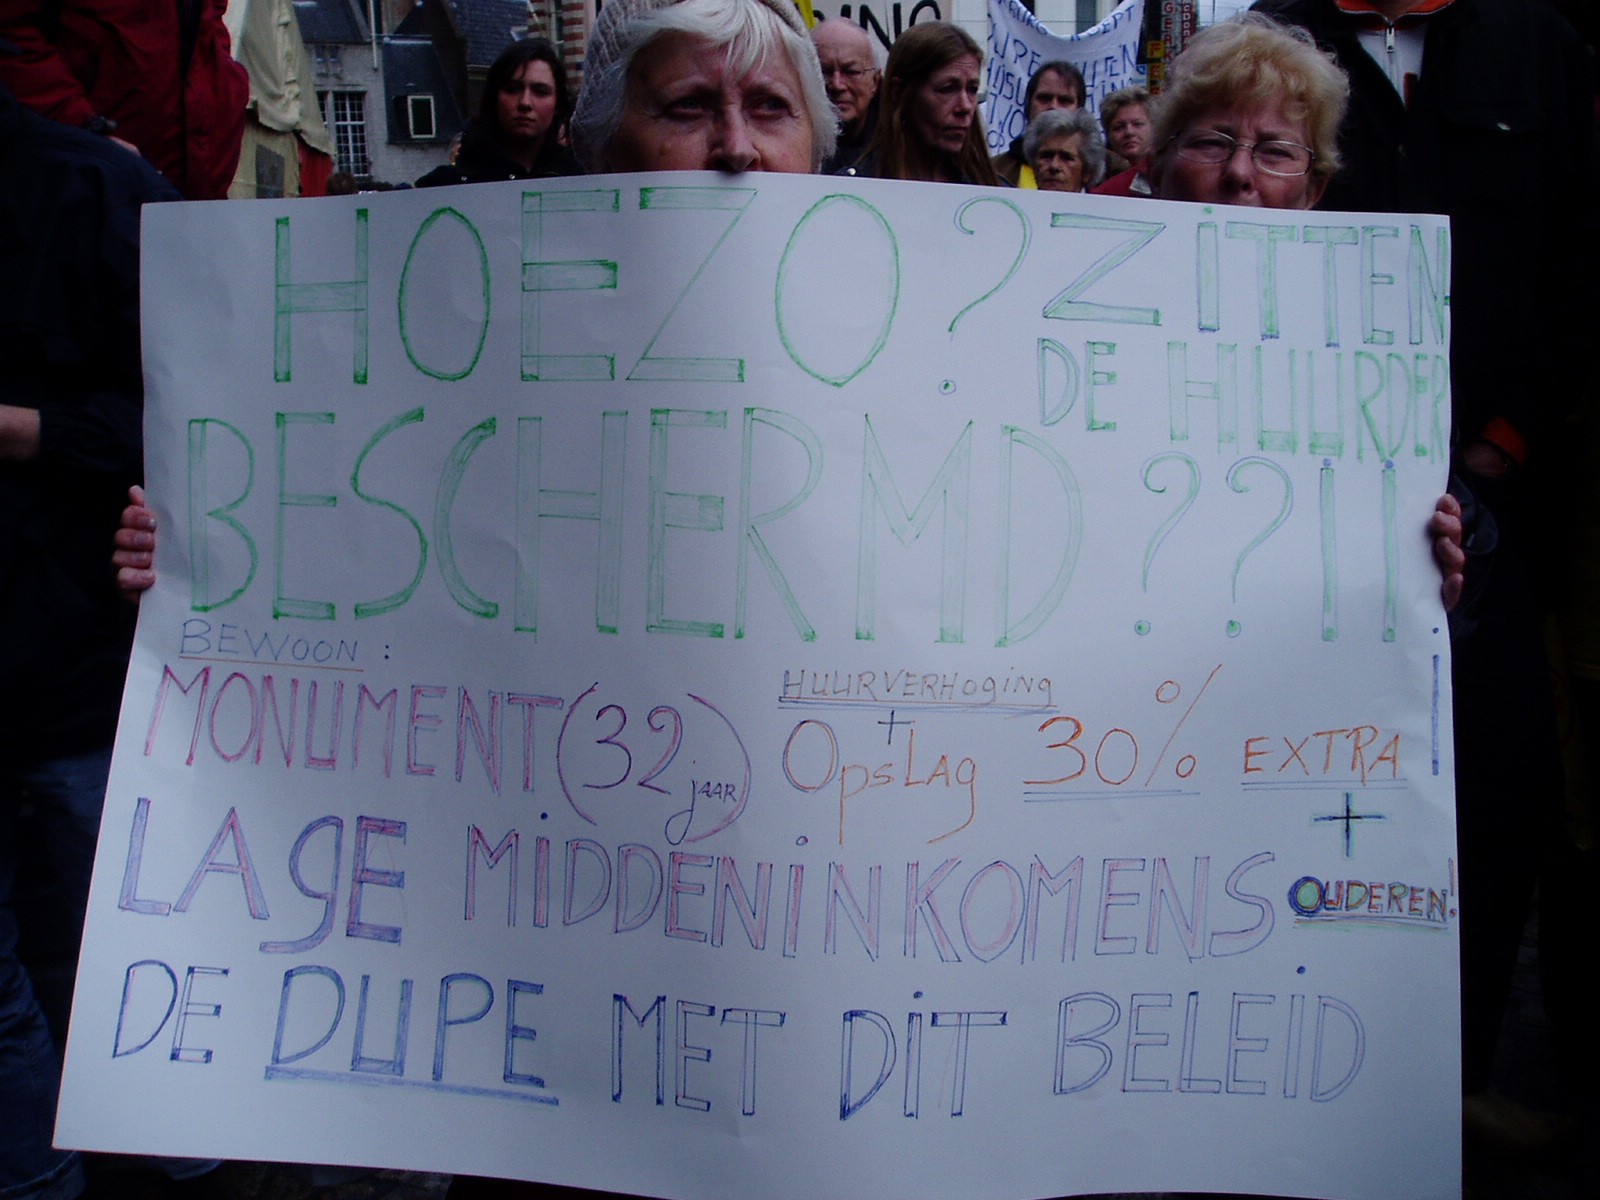 HOEZO? ZITTEN-
DE HUURDER
BESCHERMD??!!
BEWOON:
MONUMENT (32 jAAR)
HUURVERHOgINg
+
OpsLAg 30% EXTRA!
+
LAgE MiDDENiNKOMENS OUDEREN!
DE DUPE MET DiT BELEiD